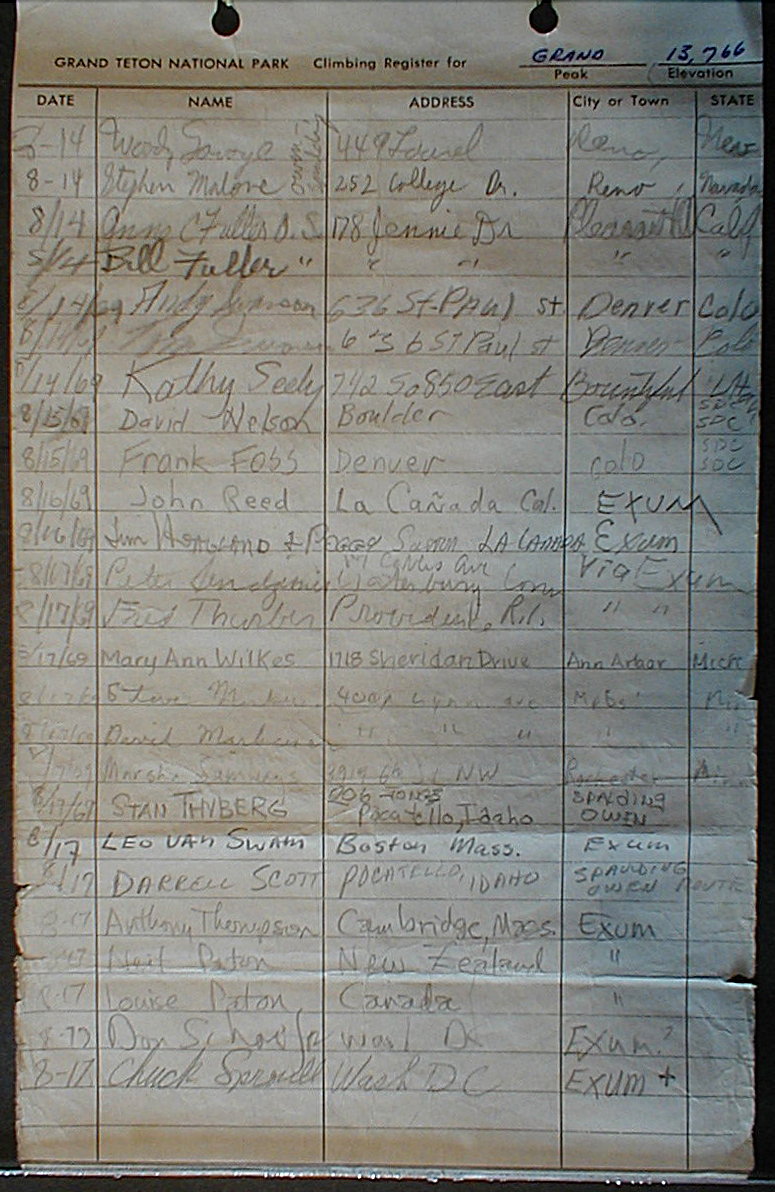 GRAND TETON NATIONAL PARK Climbing Register for GRAND 13,766
Peak Elevation
DATE NAME ADDRESS City or Town STATE
8-14 Woody 449 Laurel Reno, Nev
8-14 Stephen Malone 252 College Dr. Reno, Nevada
8/14 Anne C Fuller D.S. 178 Jennie Dr Pleasant Hill Calif
8/14 Bill Fuller " " " " "
8/14/69 Andy Swanson 636 St-Paul st. Denver Colo
636 St Paul st Denver Colo
8/14/69 Kathy Seely 742 So 850 East Bountiful Utah
8/15/69 David Nelson Boulder Colo. SDC
8/15/69 Frank Foss Denver Colo SDC SDC
8/16/69 John Reed La Cañada Cal. EXUM
8/16/69 Jim Hoagland & Peggy LA CANADA Exum
8/17/69 Peter Ave Waterbury Conn Via Exum
8/17/69 Fred Thurber Providence, R.I. " "
8/17/69 Mary Ann Wilkes 1718 Sheridan Drive Ann Arbor Mich
Steve ave
David " " " " "
Marsha 6th St NW Rochester Minn
8/17/69 STAN THYBERG 906 JONES Pocatello, Idaho SPALDING OWEN
8/17 LEO VAN SWAM Boston Mass. Exum
8/17 DARRELL SCOTT POCATELLO, IDAHO SPAULDING OWEN ROUTE
8-17 Anthony Thompson Cambridge, Mass. Exum
8-17 Paton New Zealand "
8-17 Louise Paton Canada "
8-17 Don Wash DC Exum!
8-17 Chuck Sproull Wash DC EXUM +